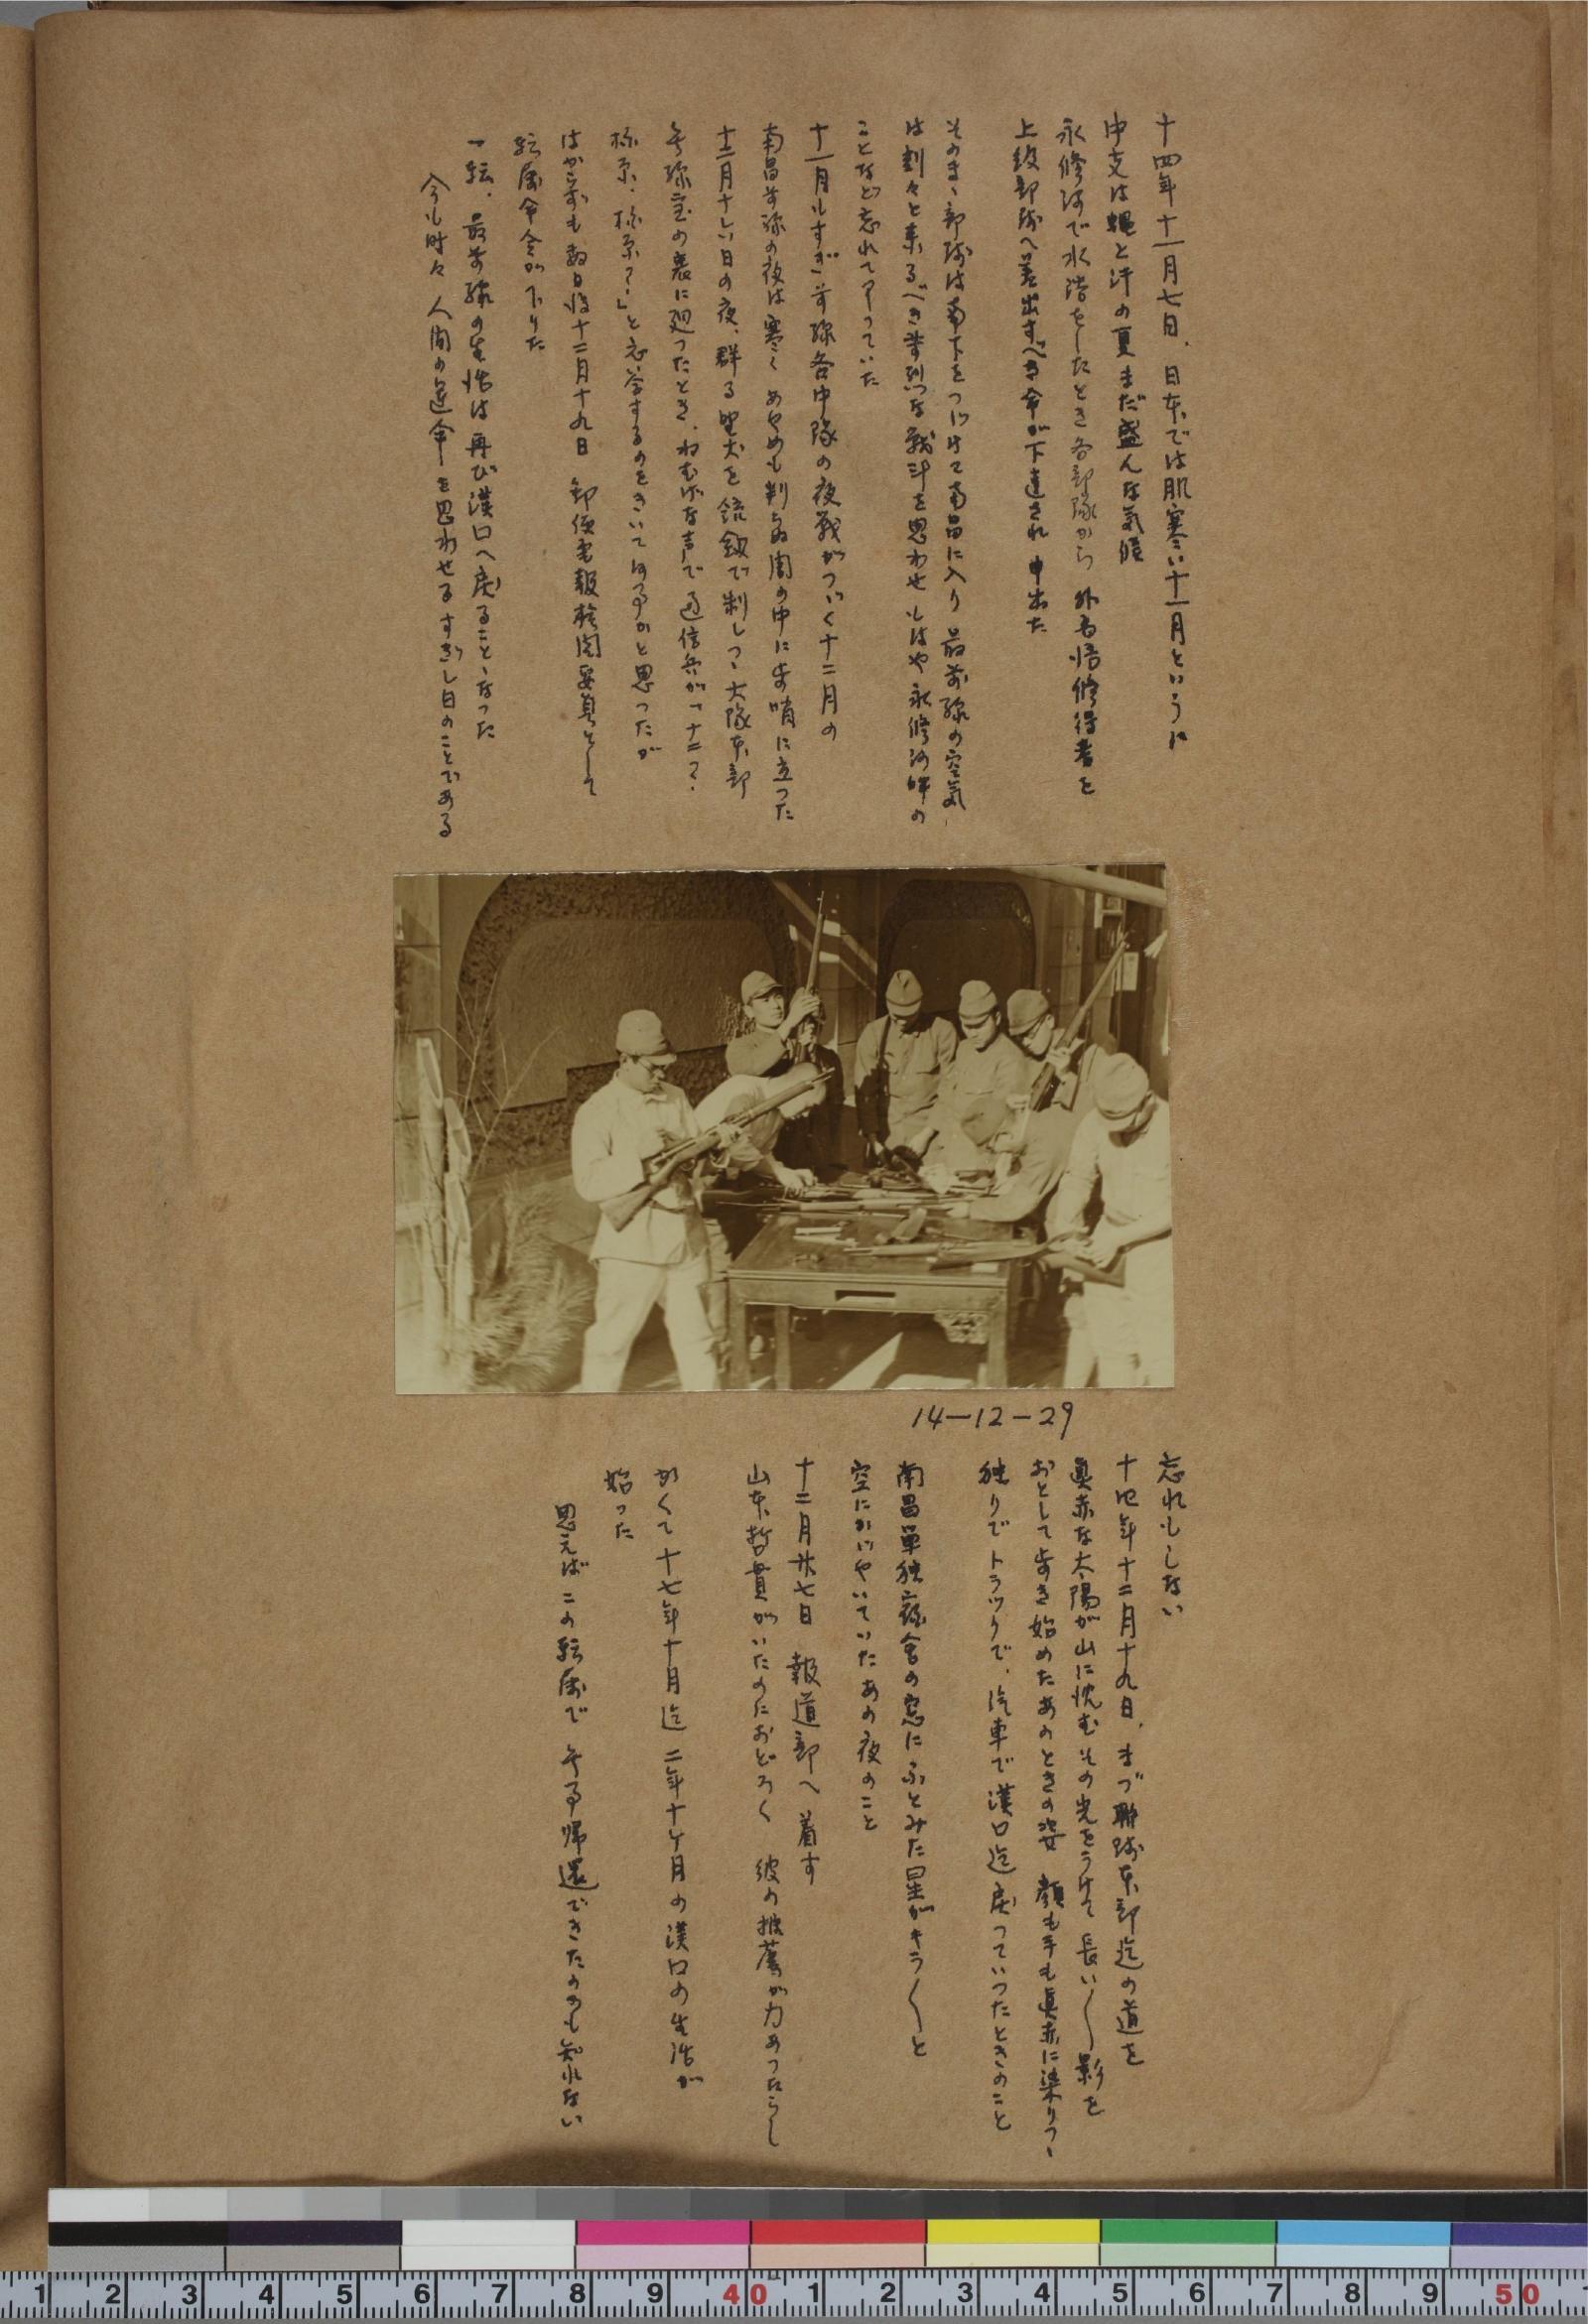 十四年十一月七日、日本では肌寒い十一月というに
中支は蝿と汗の夏まだ盛んな気候
永修河で水浴をしたとき各部隊から 外国語修得者を
上級部隊へ差出すべき命が下達され 申出た
そのまゝ部隊は南下をつゞけて南昌に入り 最前線の空気
は刻々と来るべき な戦斗を思わせ もはや永修河畔の
ことなど忘れてアっていた
十一月もすぎ 前線各中隊の夜戦がつゞく十二月の
南昌前線の夜は寒く あやめも判らぬ闇の中に歩哨に立った
十二月十六日の夜、群る野犬を銃剣で制しつゝ大隊本部
無線室の裏に廻ったとき、ねむそうな声で通信兵が「十二?、
柊原、柊原?」と応答するのをきいて何事かと思ったが
はからずも数日後十二月十九日 郵便電報検閲要員として
転属命令が下りた
一転、最前線の生活は再び漢口へ戻ることゝなった
今も時々 人間の運命を思わせるすぎし日のことである
14-12-29
忘れもしない
十四年十二月十九日、まづ聯隊本部迄の道を
真赤な太陽が山に沈むその光をうけて 長い〳〵影を
おとして歩き始めたあのときの姿 顔も手も真赤に染りつゝ
独りで トラックで、汽車で漢口迄戻っていったときのこと
南昌単独宿舎の窓にふとみた星がキラ〳〵と
空にかゞやいていたあの夜のこと
十二月廿七日 報道部へ着す
山本哲貫がいたのにおどろく 彼の推薦が力あったらし
かくて十七年十月迄 二年十ケ月の漢口の生活が
始った
思えばこの転属で 無事帰還できたのかも知れない
1 2 3 4 5 6 7 8 9 40 1 2 3 4 5 6 7 8 9 50